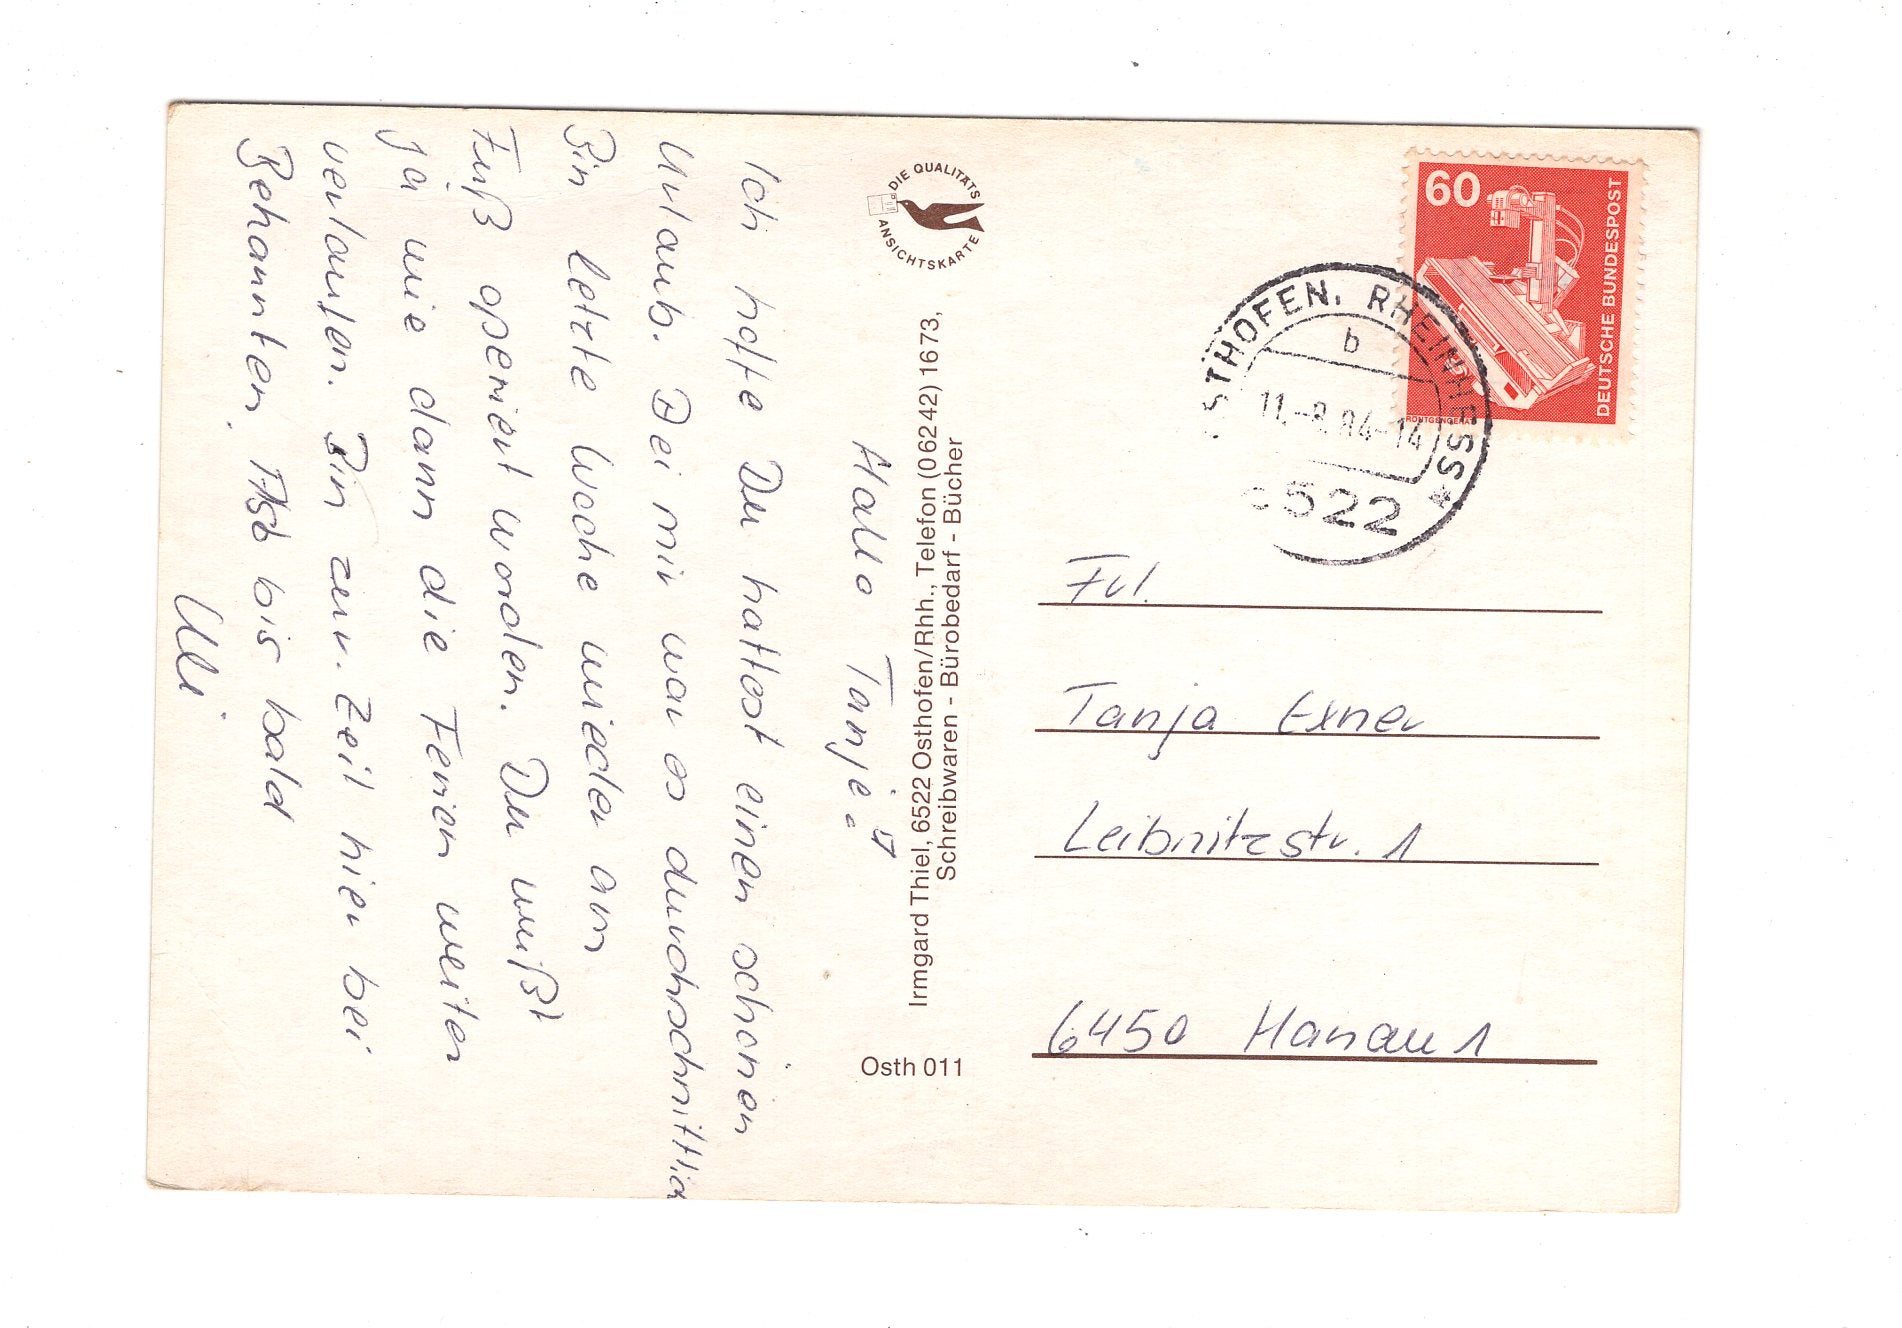 Hallo Tanja!
Ich hoffe Du hattest einen schönen
Urlaub. Bei mir war es durchschnittlich
Bin letzte Woche wieder am
Fuß operiert worden. Du weißt
ja wie dann die Ferien weiter
verlaufen. Bin zur. Zeit hier bei
Bekannten. Also bis bald
Uli
DIE QUALITÄTS
ANSICHTSKARTE
Irmgard Thiel, 6522 Osthofen/Rhh., Telefon (0 62 42) 16 73,
Schreibwaren - Bürobedarf - Bücher
Osth 011
60
DEUTSCHE BUNDESPOST
RÖNTGENGERÄT
OSTHOFEN, RHEINHESS
b
11.-8.84-14
6522
Frl.
Tanja Exner
Leibnitzstr. 1
6450 Hanau 1